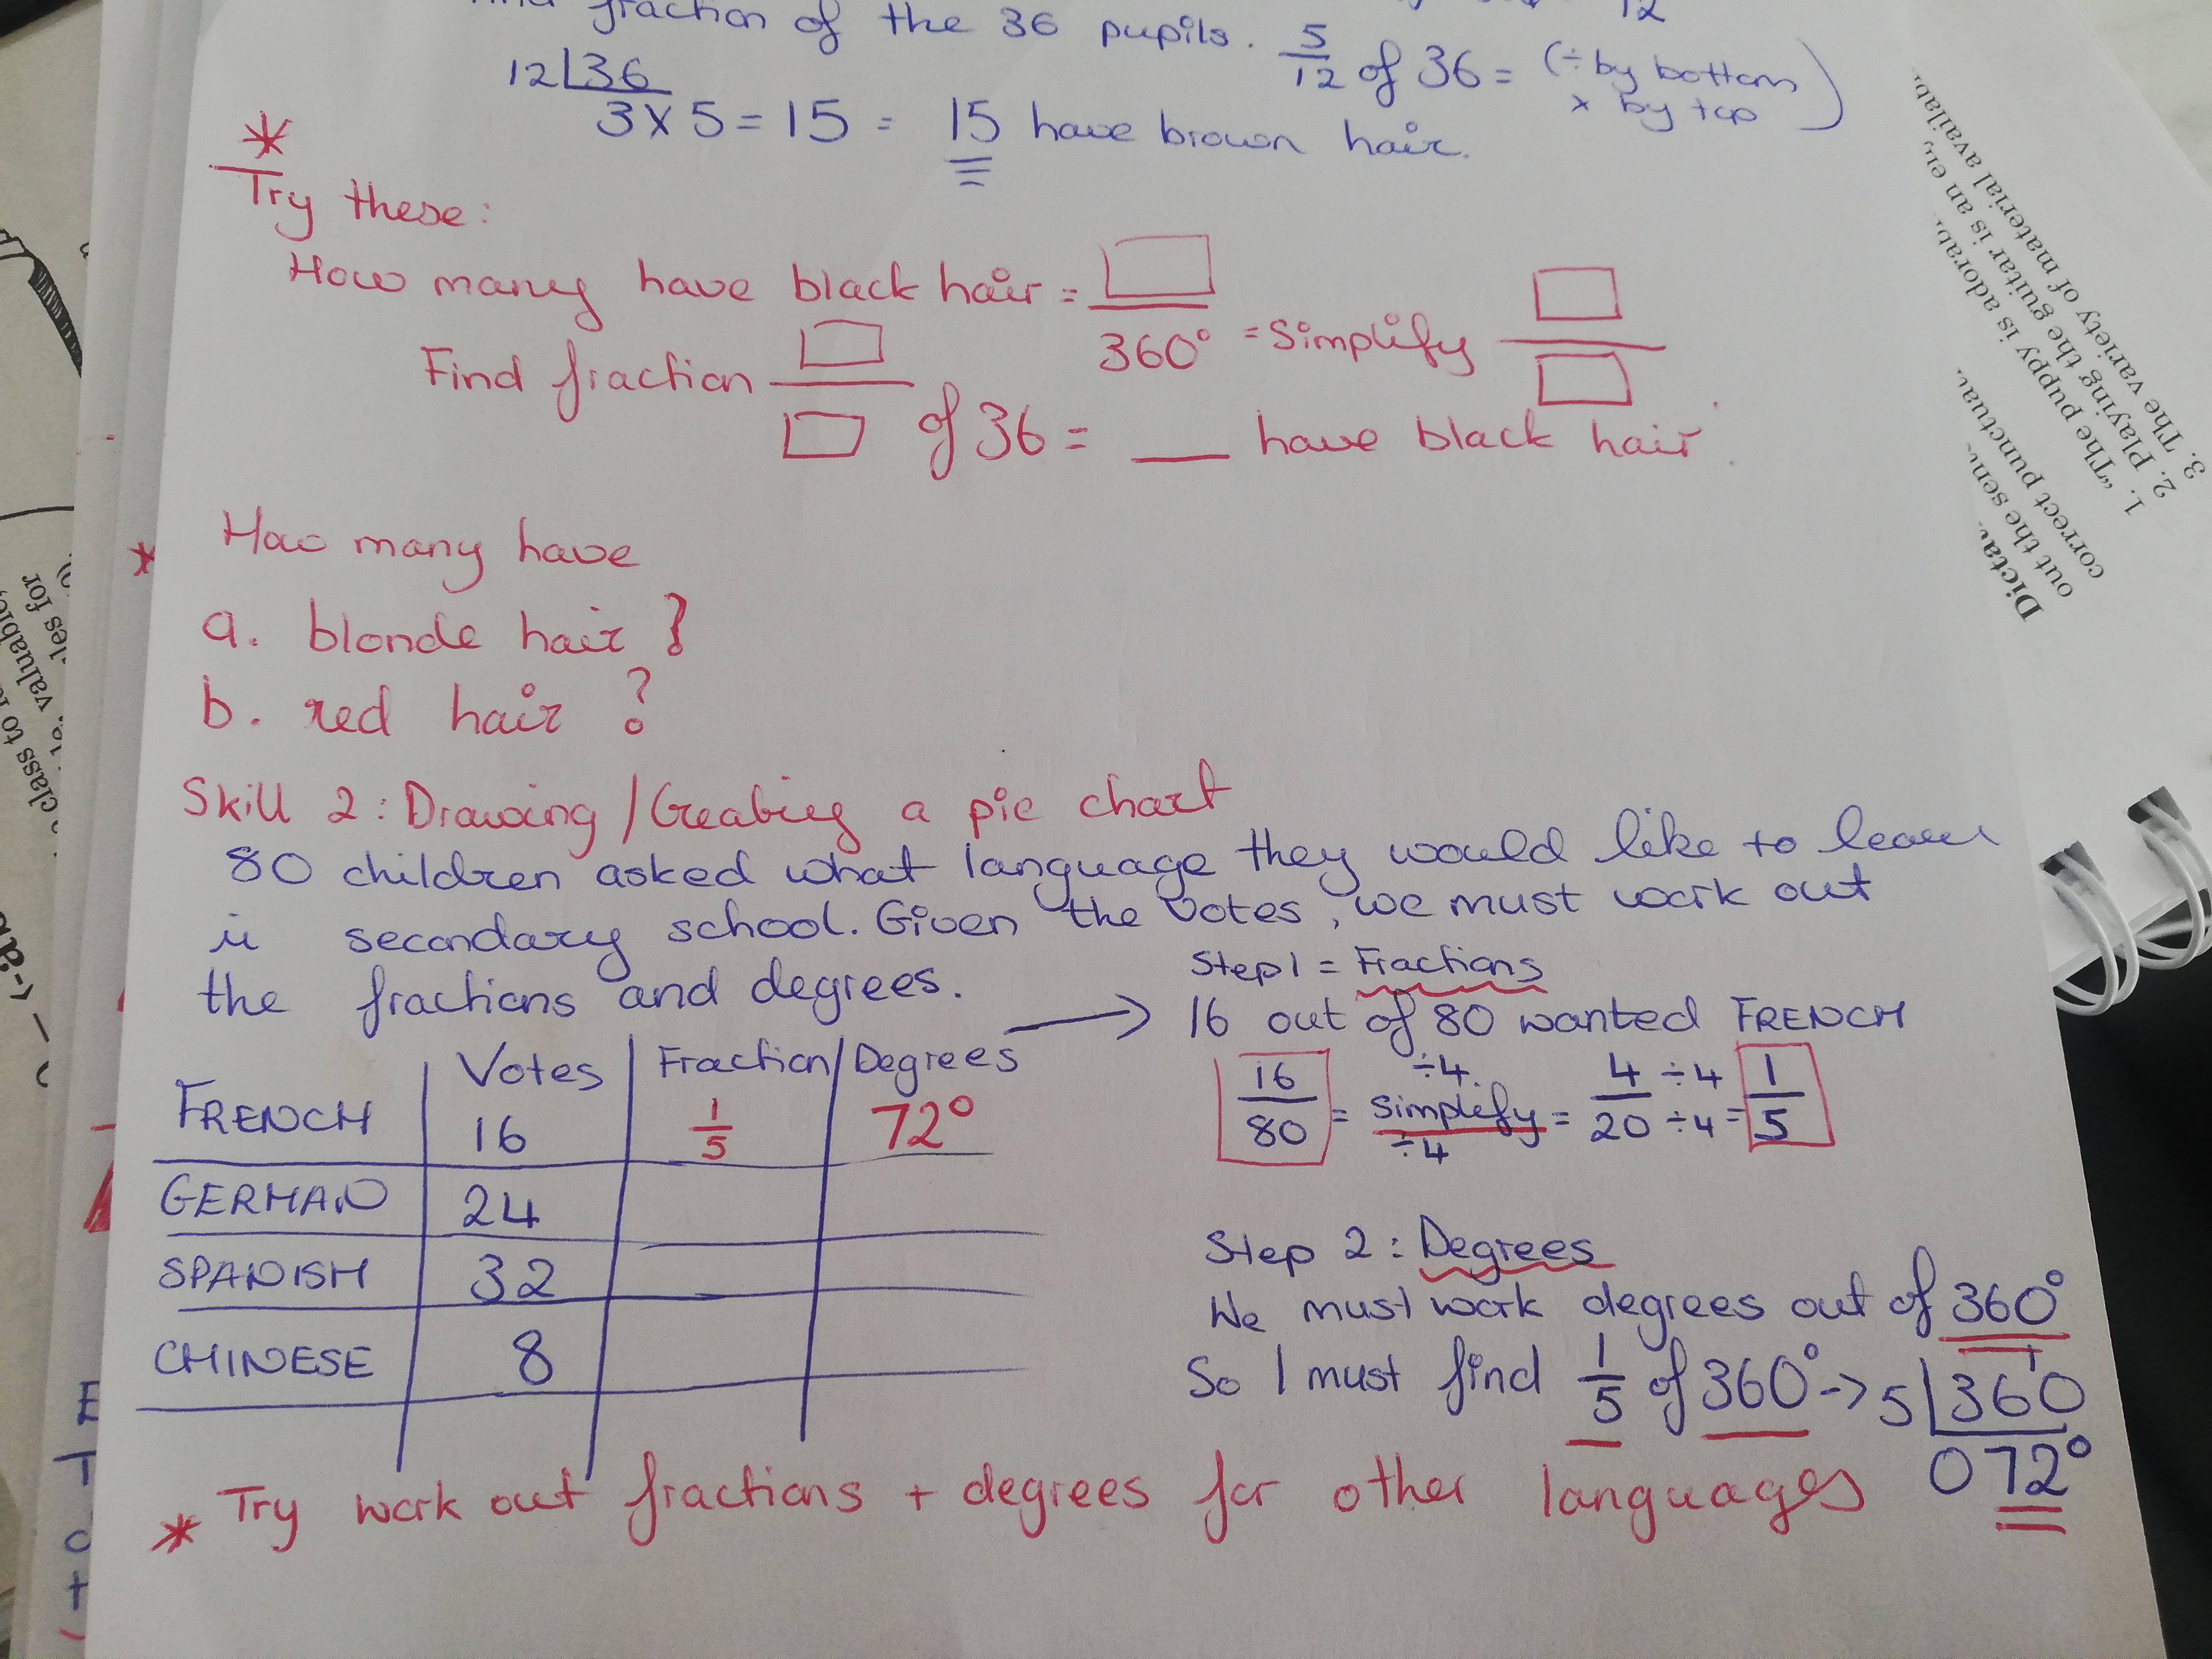 fraction of the 36 pupils. 5/12 of 36 = (÷ by bottom
x by top)
12 36
3 x 5 = 15 = 15 have brown hair.
*
Try these:
How many have black hair = □/360° = Simplify □/□
Find fraction □/□ of 36 = __ have black hair.
* How many have
a. blonde hair?
b. red hair?
Skill 2: Drawing/Creating a pie chart
80 children asked what language they would like to learn
in secondary school. Given the votes, we must work out
the fractions and degrees.
Votes Fraction Degrees
FRENCH 16 1/5 72°
GERMAN 24
SPANISH 32
CHINESE 8
→ Step 1 = Fractions
16 out of 80 wanted FRENCH
16/80 = simplify ÷4/÷4 = 4/20 ÷4/÷4 = 1/5
Step 2: Degrees
We must work degrees out of 360°
So I must find 1/5 of 360° -> 5 360
072°
* Try work out fractions + degrees for other languages
out the
correct
1. "The puppy is
2. Playing the guitar is an
3. The variety of material
class to
valuable
for